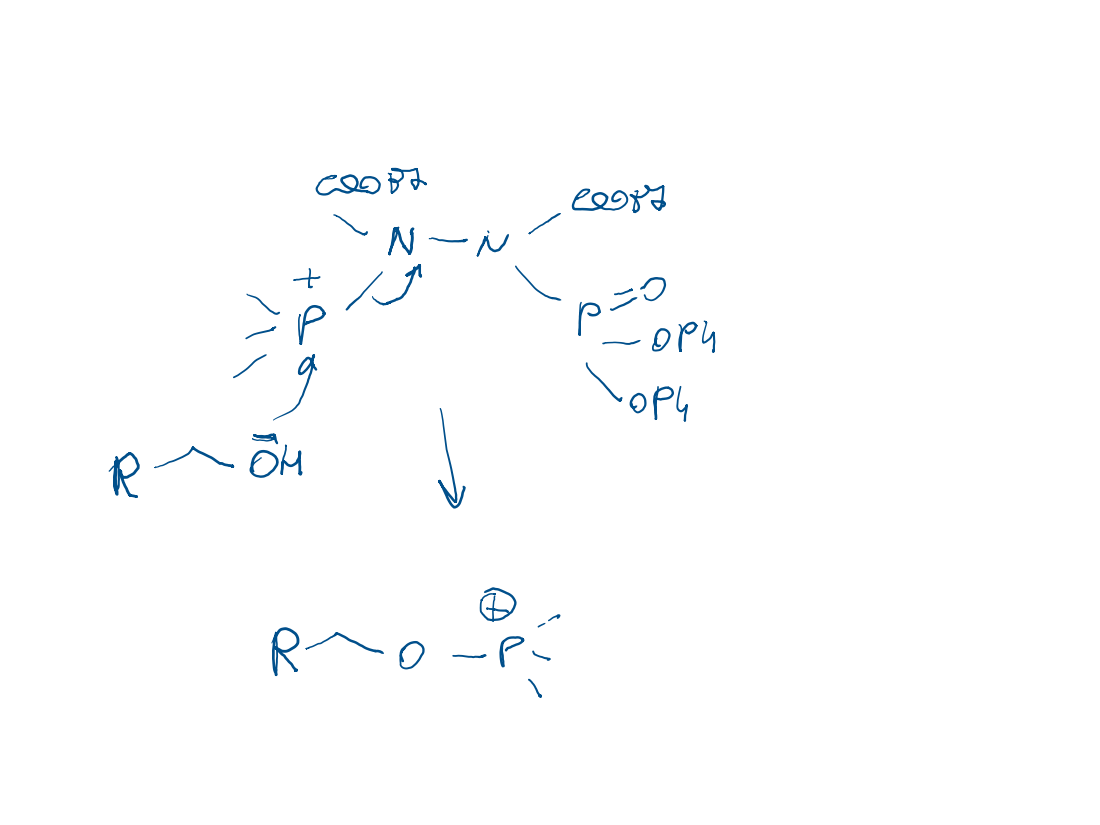 COOBZ
COOBZ
N — N
+
P
P = O
OPh
OPh
R OH
⊕
R O — P